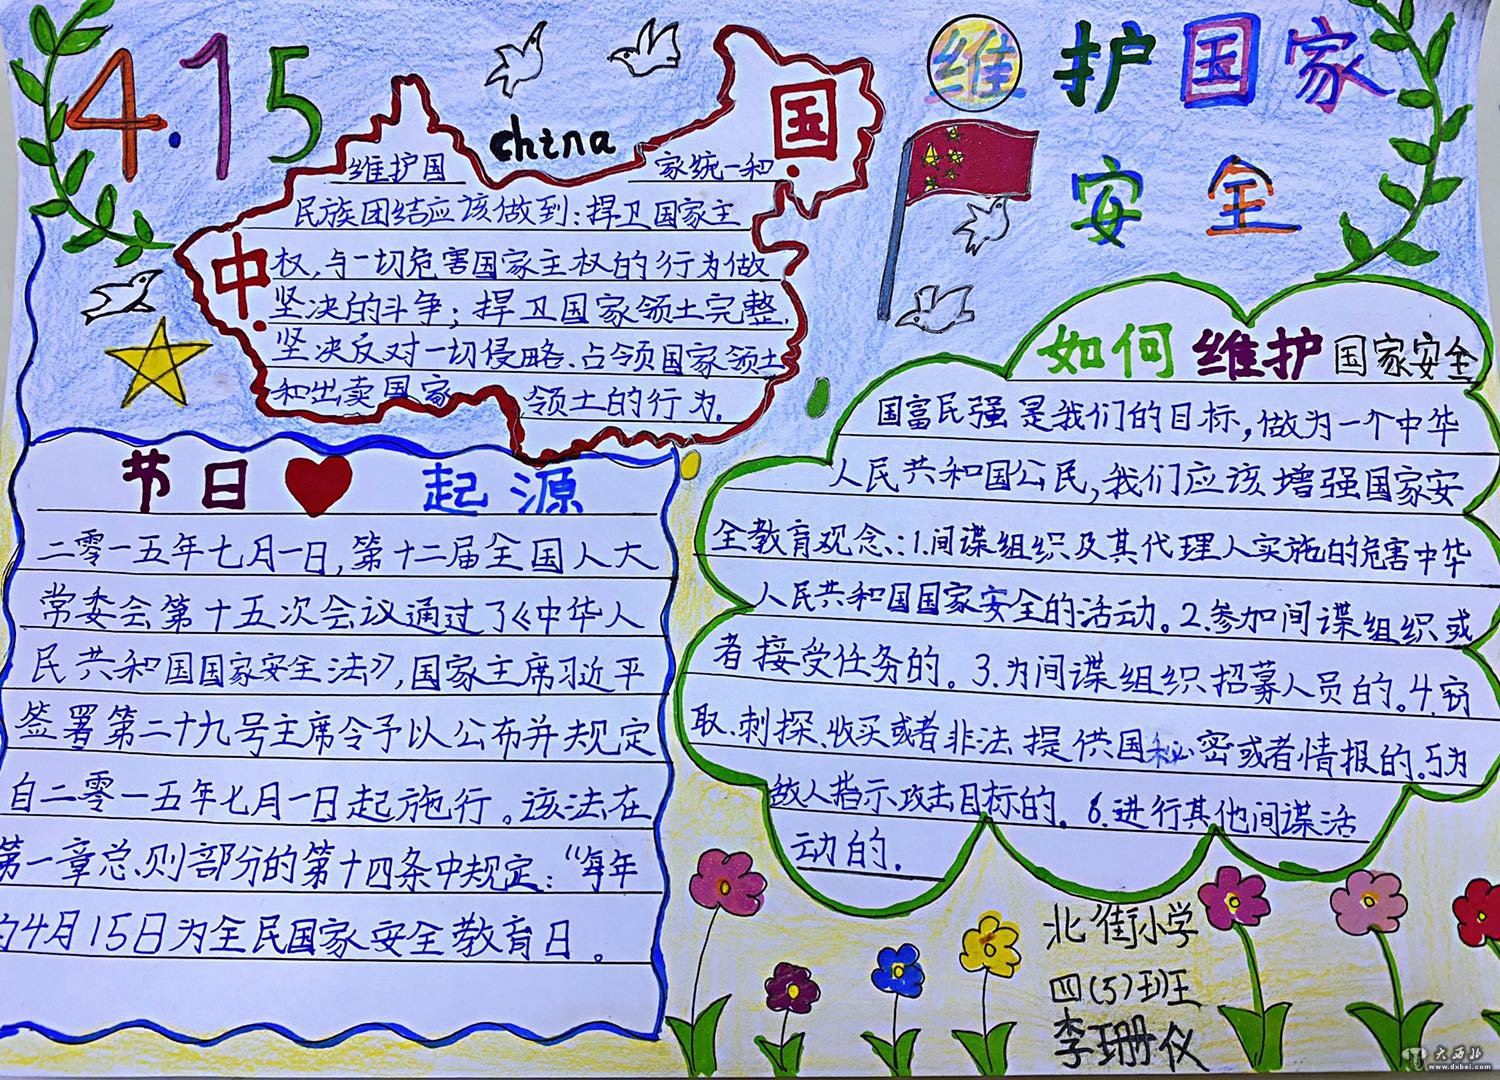 4.15
维护国家
安全
china
中国
维护国 家统一和
民族团结应该做到:捍卫国家主
权,与一切危害国家主权的行为做
坚决的斗争;捍卫国家领土完整,
坚决反对一切侵略、占领国家领土
和出卖国家 领土的行为.
节日 起源
二零一五年七月一日,第十二届全国人大
常委会第十五次会议通过了《中华人
民共和国国家安全法》,国家主席习近平
签署第二十九号主席令予以公布并规定
自二零一五年七月一日起施行。该法在
第一章总则部分的第十四条中规定:“每年
的4月15日为全民国家安全教育日。
如何维护国家安全
国富民强是我们的目标,做为一个中华
人民共和国公民,我们应该增强国家安
全教育观念、:1.间谍组织及其代理人实施的危害中华
人民共和国国家安全的活动。2.参加间谍组织或
者接受任务的。3.为间谍组织招募人员的。4.窃
取、刺探、收买或者非法提供国秘密或者情报的。5为
敌人指示攻击目标的。6.进行其他间谍活
动的.
北街小学
四(5)班
李珊仪
大西北
www.dxbei.com